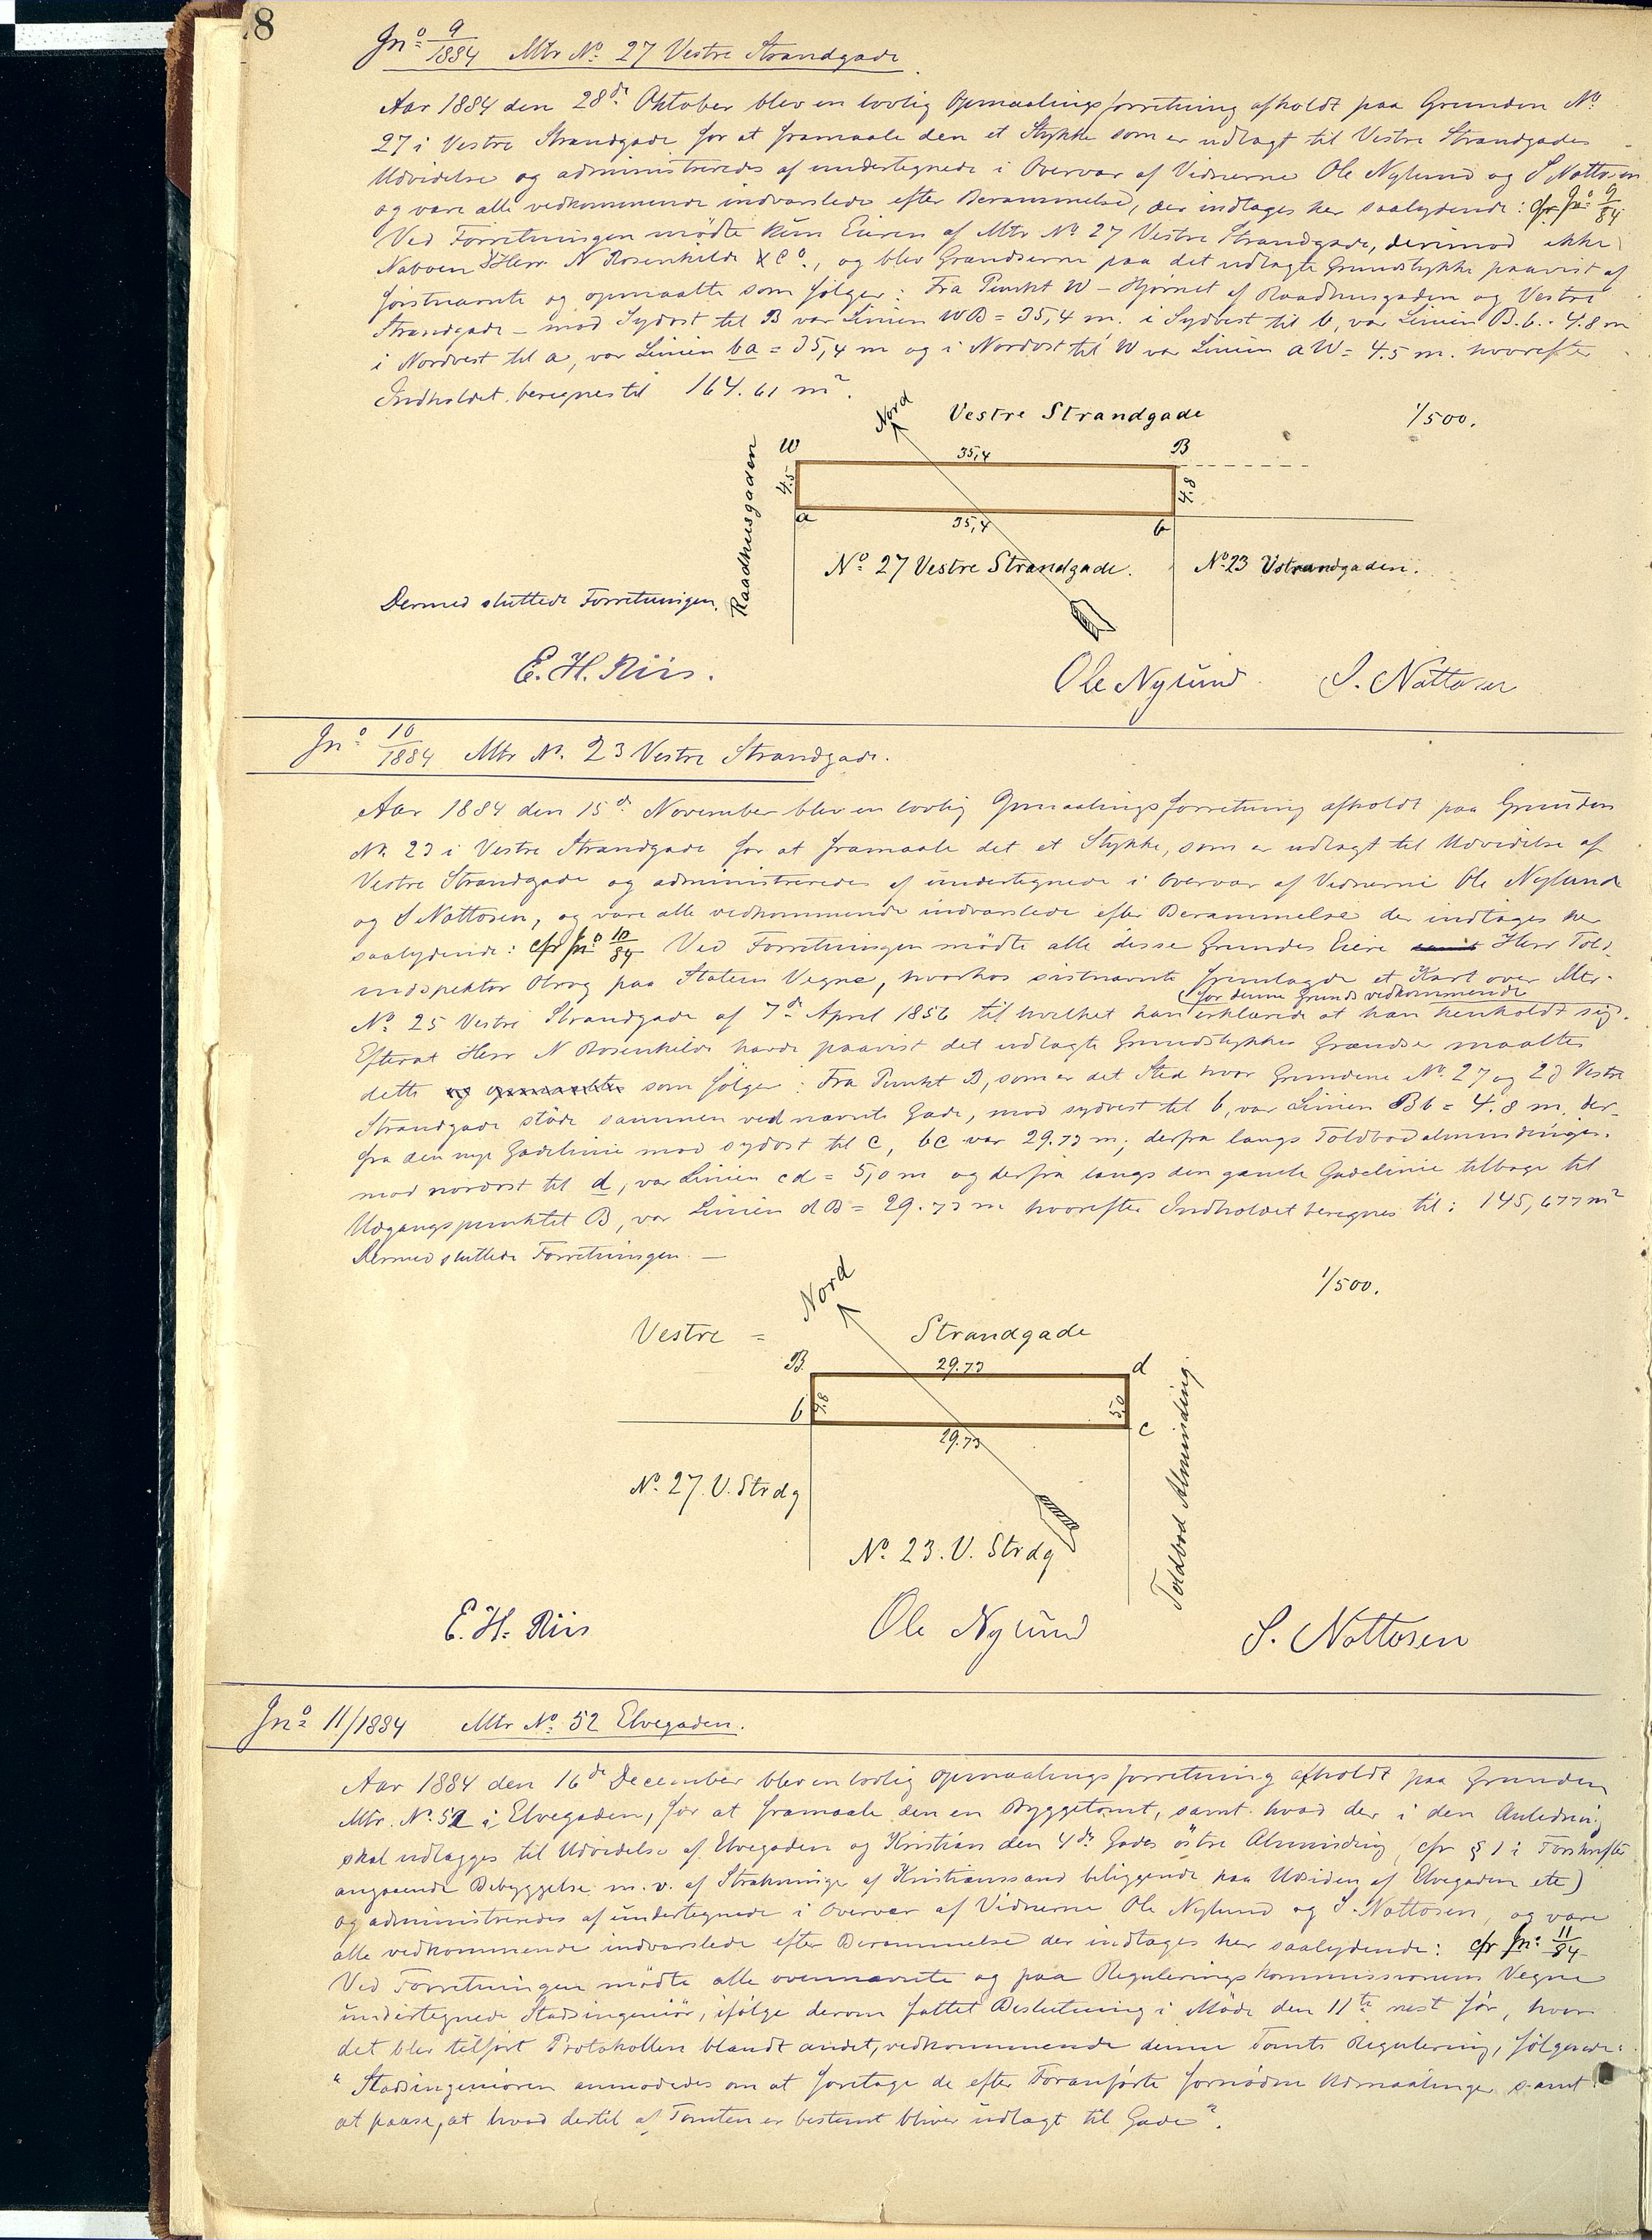 8
Jno 9/1884 Mtr No 27 Vestre Strandgade
Aar 1884 den 28de Oktober blev en lovlig Opmaalingsforretning afholdt paa Grunden No
27 i Vestre Strandgade for at framaale den et Stykke som er udlagt til Vestre Strandgades
Udvidelse og administreredes af undertegnede i Overvær af Vidnerne Ole Nylund og S Nottosen
og vare alle vedkommende indvarslede efter Berammelse, der indtages her saalydende: cfr Jno 9/84
Ved Forretningen mödte kun Eieren af Mtr No 27 Vestre Strandgade, derimod ikke
Naboen Herr N Rosenkilde & Co., og blev Grændserne paa det udlagte Grundstykke paavist af
förstnævnte og opmaalte som fölger: Fra Punkt W – Hjörnet af Raadhusgaden og Vestre
Strandgade – mod Sydost til B var Linien WB = 35,4 m. i Sydvest til b, var Linien B.b. = 4.8 m
i Nordvest til a, var Linien ba = 35,4 m og i Nordost til W var Linien aW = 4.5 m. hvorefter
Indholdet beregnes til 164.61 m2.
Nord
Vestre Strandgade
1/500.
W
35,4
B
Raadhusgaden
4.5
4.8
a
35,4
b
No 27 Vestre Strandgade.
No 23 Vstrandgaden.
Dermed sluttede Forretningen.
E. H. Riis.
Ole Nylund
S. Nottosen
Jno 10/1884 Mtr No. 23 Vestre Strandgade.
Aar 1884 den 15de November blev en lovlig Opmaalingsforretning afholdt paa Grunden
No. 23 i Vestre Strandgade for at framaale det et Stykke, som er udlagt til Udvidelse af
Vestre Strandgade og administreredes af undertegnede i Overvær af Vidnerne Ole Nylund
og S Nottosen, og vare alle vedkommende indvarslede efter Berammelse der indtages her
saalydende: cfr Jno 10/84 Ved Forretningen mödte alle disse Grundes Eiere samt Herr Told-
indspektör Obrog paa Statens Vegne, hvorhos sistnævnte fremlagde et Kart over Mtr.
for denne Grunds vedkommende
No 25 Vestre Strandgade af 7de April 1856 til hvilket han erklærede at han henholdt sig.
Efterat Herr N Rosenkilde havde paavist det udlagte Grundstykkes Grændser maaltes
dette og opmaaltes som fölger: Fra Punkt B, som er det Sted hvor Grundene No. 27 og 23 Vestre
Strandgade stöde sammen ved nævnte Gade, mod sydvest til b, var Linien Bb = 4.8 m, der-
fra den nye Gadelinie mod sydost til c, bc var 29.73 m; derfra langs Toldbodalmindingen
mod nordost til d, var Linien cd = 5,0 m og derfra langs den gamle Gadelinie tilbage til
Udgangspunktet B, var Linien dB = 29.73 m hvorefter Indholdet beregnes til: 145,677 m2
Dermed sluttede Forretningen. —
Nord
1/500.
Vestre = Strandgade
B
29.73
d
b
4.8
5.0
c
29.73
Toldbod Alminding
No. 27. V. Strdg
No. 23. V. Strdg
E. H. Riis
Ole Nylund
S. Nottosen
Jno 11/1884 Mtr No. 52 Elvegaden.
Aar 1884 den 16de December blev en lovlig Opmaalingsforretning afholdt paa Grunden
Mtr. No. 52 i Elvegaden, for at framaale den en Byggetomt, samt hvad der i den Anledning
skal udlægges til Udvidelse af Elvegaden og Kristian den 4des Gades östre Alminding, (cfr § 1 i Forskrifter
angaaende Bebyggelse m. v. af Strækninge af Kristianssand beliggende paa Udsiden af Elvegaden etc)
og administreredes af undertegnede i Overvær af Vidnerne Ole Nylund og S. Nottosen, og vare
alle vedkommende indvarslede efter Berammelse der indtages her saalydende: cfr Jno 11/84
Ved Forretningen mödte alle ovennævnte og paa Reguleringskommissionens Vegne
undertegnede Stadsingeniör, ifölge derom fattet Beslutning i Möde den 11te næst för, hvor
det blev tilfört Protokollen blandt andet, vedkommende denne Tomts Regulering, fölgende:
"Stadsingeniören anmodedes om at foretage de efter Foranförte fornödne Udmaalinger samt
at paase, at hvad dertil af Tomten er bestemt bliver udlagt til Gade".